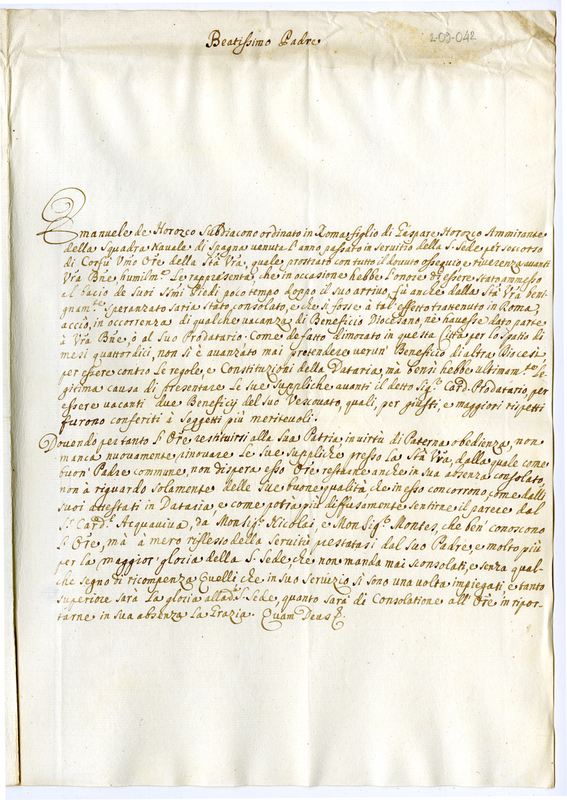 Beatissimo Padre
2-09-042
Emanuele de Horozco Subdiacono ordinato in Roma, figlio di Gaspare Horozco Ammirante
della Squadra Navale di Spagna venuta l'anno passato in servitio della S. Sede, per soccorso
di Corfù Vmo Ore della Stà Vra, quale prostrato con tutto il dovuto ossequio, e riverenza avanti
Vra Bne, humilmte Le rappresenta, che in occasione hebbe l'onore di essere stato ammesso
al bacio de Suoi SSmi Piedi poco tempo doppo il suo arrivo, fù anche dalla Stà Vra beni-
gnamte Speranzato saria stato consolato, e che si fosse à tal effetto trattenuto in Roma,
acciò, in occorrenza di qualche vacanza di Beneficio Diocesano, ne havesse dato parte
à Vra Bne, ò al Suo Prodatario: Come de fatto dimorato in questa Città per lo spatio di
mesi quattordici, non si è avanzato mai pretendere verun' Beneficio di altre Diocesi
per essere contro Le regole, e Constitutioni della Dataria, mà bensi hebbe ultimamte le-
gitima causa di presentare Le sue suppliche avanti il detto Sigr Card. Prodatario, per
essere vacanti due Beneficij del suo Vescovato, quali, per giusti, e maggiori rispetti
furono conferiti à Soggetti più meritevoli.
Dovendo per tanto l'Ore restituirsi alla Sua Patria, in virtù di Paterna obedienza, non
manca nuovamente rinovare Le Sue Suppliche presso La Stà Vra, dalla quale come
buon' Padre commune, non dispera esso Ore restare anche in Sua absenza consolato,
non à riguardo solamente delle Sue buone qualità che in esso concorrono, come dalli
Suoi attestati in Dataria, e come potrà più diffusamente sentire il parere dal
Sr Card. Acquaviva, da Monsigr Nicolai, e Monsigr Montes, che ben' conoscono
l'Ore, mà à mero riflesso della Servitù prestata si dal suo Padre, e molto più
per la maggior' gloria della S. Sede, che non manda mai sconsolati, e senza qual-
che segno di ricompenza Quelli che in suo Servizio si sono una volta impiegati, e tanto
superiore sarà La gloria alla da S. Sede, quanto sarà di Consolatione all' Ore in ripor-
tarne in sua absenza La Grazia. Quam Deus &